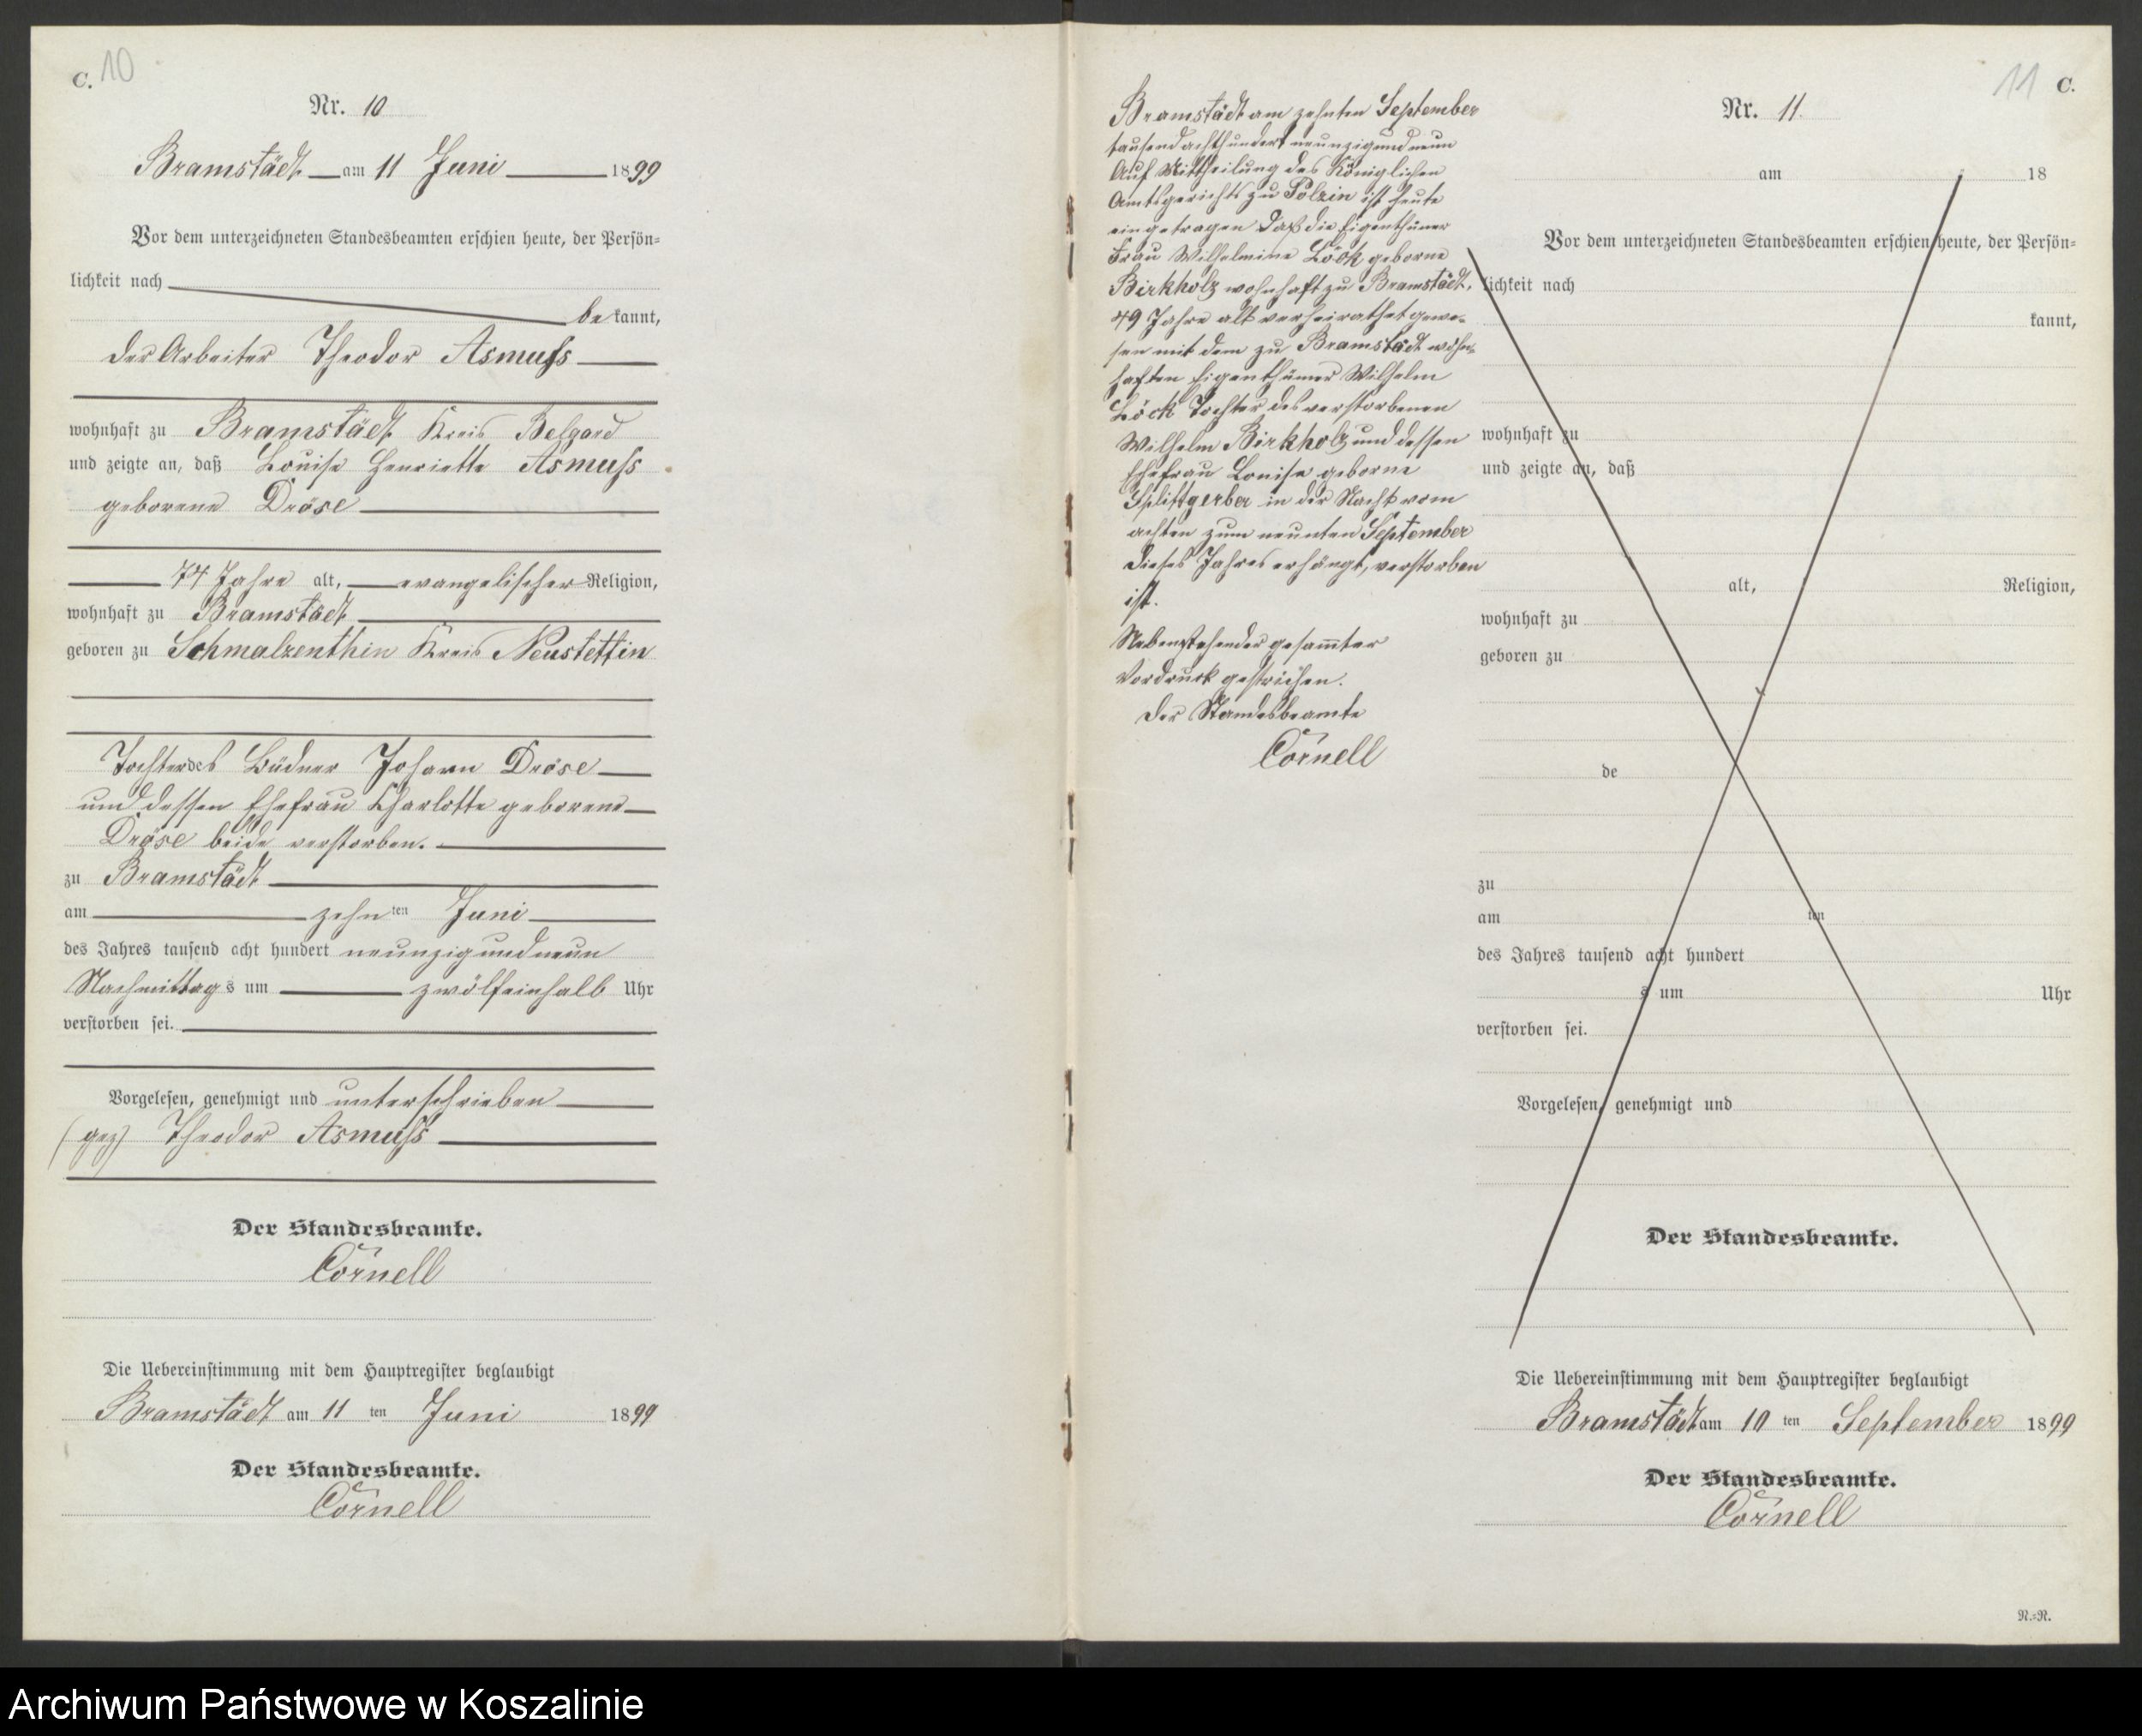 C. 10
Nr. 10
Bramstädt am 11 Juni 1899
Vor dem unterzeichneten Standesbeamten erschien heute, der Persön=
lichkeit nach
be kannt,
der Arbeiter Theodor Asmuss
wohnhaft zu Bramstädt Kreis Belgard
und zeigte an, daß Louise Henriette Asmuss
geborene Dröse
74 Jahre alt, evangelischer Religion,
wohnhaft zu Bramstädt
geboren zu Schmalzenthin Kreis Neustettin
Tochter des Büdner Johann Dröse
und dessen Ehefrau Charlotte geborene
Dröse beide verstorben.
zu Bramstädt
am zehn ten Juni
des Jahres tausend acht hundert neunzigundneun
Nachmittag s um zwölfeinhalb Uhr
verstorben sei.
Vorgelesen, genehmigt und unterschrieben
(gez) Theodor Asmuss
Der Standesbeamte.
Cörnell
Die Uebereinstimmung mit dem Hauptregister beglaubigt
Bramstädt am 11 ten Juni 1899
Der Standesbeamte.
Cörnell
Bramstädt am zehnten September
tausendachthundert neunzigundneun
Auf Mittheilung des Königlichen
Amtsgerichts zu Polzin ist heute
eingetragen daß die Eigenthümer
Frau Wilhelmine Löck geborne
Birkholz wohnhaft zu Bramstädt,
49 Jahre alt verheirathet gewe=
sen mit dem zu Bramstädt wohn=
haften Eigenthümer Wilhelm
Löck Tochter des verstorbenen
Wilhelm Birkholz und dessen
Ehefrau Louise geborne
Splittgerber in der Nacht vom
achten zum neunten September
dieses Jahres erhängt, verstorben
ist.
Nebenstehender gesammter
Vordruck gestrichen.
Der Standesbeamte
Cörnell
11 C.
Nr. 11.
am 18
Vor dem unterzeichneten Standesbeamten erschien heute, der Persön=
lichkeit nach
kannt,
wohnhaft zu
und zeigte an, daß
alt, Religion,
wohnhaft zu
geboren zu
de
zu
am ten
des Jahres tausend acht hundert
s um Uhr
verstorben sei.
Vorgelesen, genehmigt und
Der Standesbeamte.
Die Uebereinstimmung mit dem Hauptregister beglaubigt
Bramstädt am 10 ten September 1899
Der Standesbeamte.
Cörnell
N.=N.
Archiwum Państwowe w Koszalinie